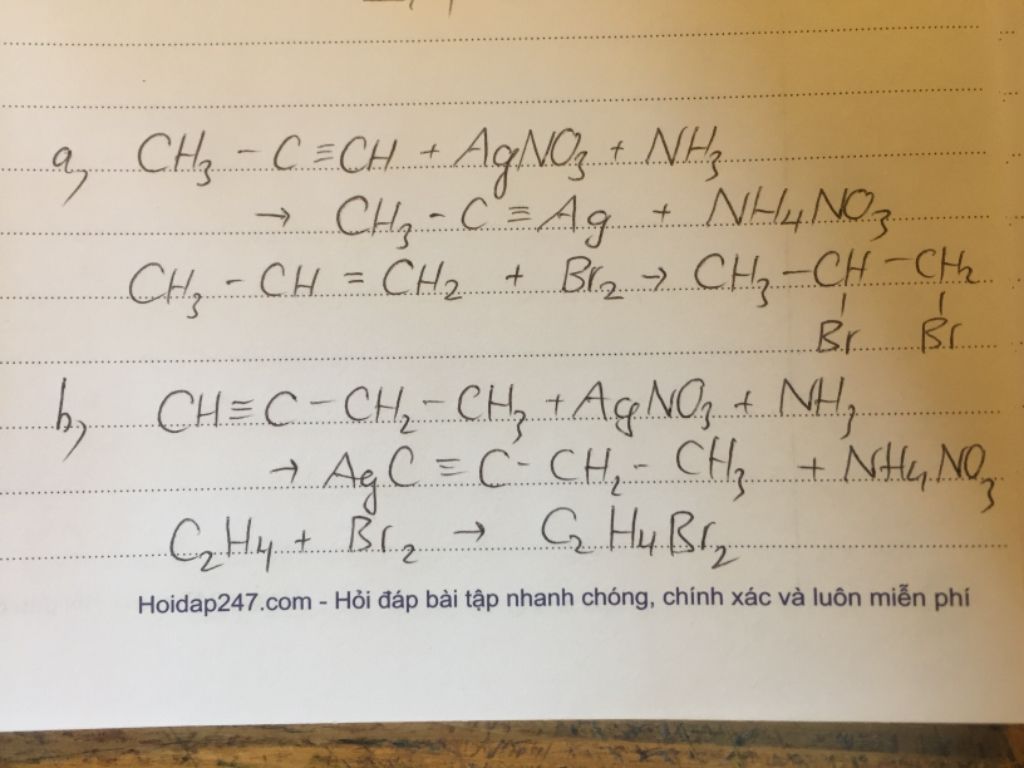 a, CH₃ - C ≡ CH + AgNO₃ + NH₃
→ CH₃ - C ≡ Ag + NH₄NO₃
CH₃ - CH = CH₂ + Br₂ → CH₃ - CH - CH₂
Br Br
b, CH ≡ C - CH₂ - CH₃ + AgNO₃ + NH₃
→ AgC ≡ C - CH₂ - CH₃ + NH₄NO₃
C₂H₄ + Br₂ → C₂H₄Br₂
Hoidap247.com - Hỏi đáp bài tập nhanh chóng, chính xác và luôn miễn phí